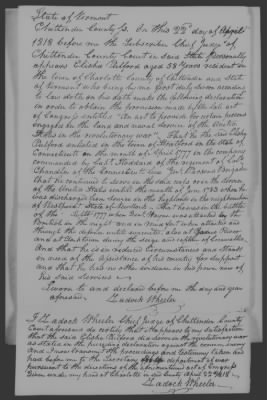 State of Vermont
Chittenden County SS. On this 22d day of April
1818 before me the Subscriber Chief Judge of
Chittenden County Court in said State personally
appears Elisha Pulford aged 58 years resident in
the town of Charlotte County of Chittenden and State
of Vermont who being by me first duly sworn according
to law doth on his oath make the following declaration
in order to obtain the provision made by the late act
of Congress entitled "An act to provide for certain persons
engaged in the land and naval service of the United
States in the revolutionary war" That he the said Elisha
Pulford enlisted in the town of Stratford in the State of
Connecticut on the month of April 1777 in the company
commanded by Capt. of the regiment of Col.
Chandler of the Connecticut line Brigade
that he continued to serve in the said corps in the service
of the United States until the month of 1783 when he
was discharged from service on the highlands in the neighborhood
of State of that he was in the battle
of 1777 when Genl Wayne was attacked by the
British in the night and in
through the also at
and at
And that he is in reduced circumstances and stands
in need of the assistance of his country for support
and that he has no other evidence in his power now of
his said services
Sworn to and declared before me the day and year
aforesaid Zadock Wheeler
I Zadock Wheeler Chief Judge of Chittenden County
Court aforesaid do certify that it appears to my satisfaction
that the said Elisha Pulford did serve in the revolutionary war
as stated in the preceding declaration against the common enemy
and I now transmit the proceedings and testimony taken and
had before me to the Secretary for the department of war
pursuant to the directions of the aforementioned act of Congress
Given under my hand at Charlotte in said County April 22d 1818
Zadock Wheeler